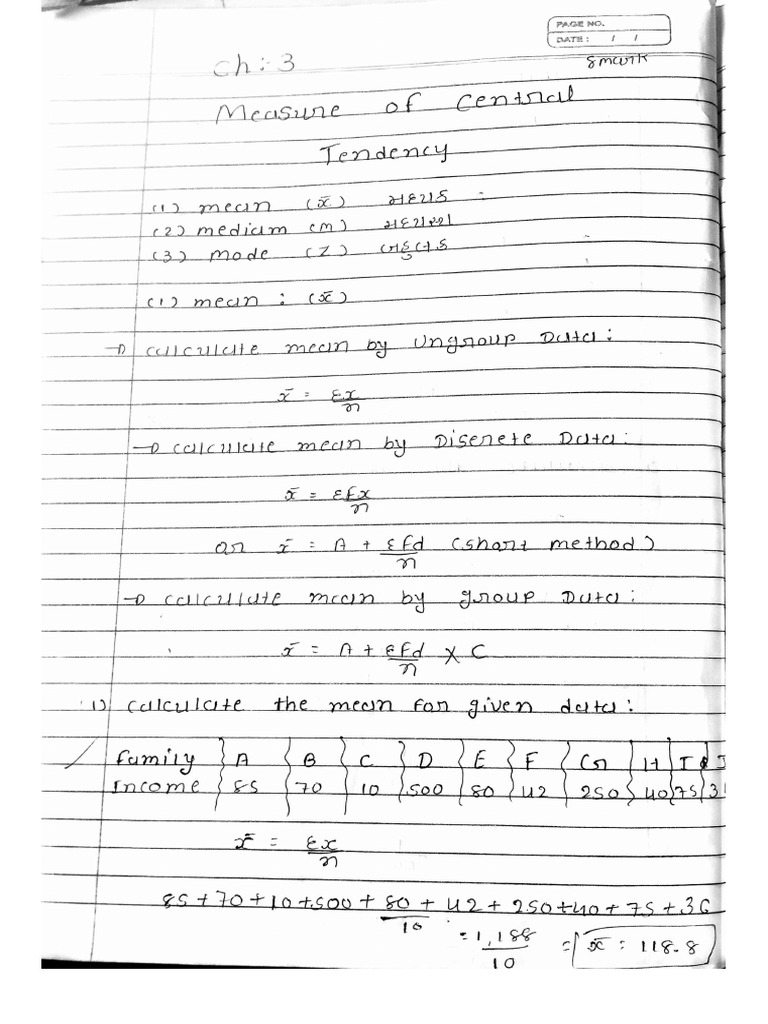 PAGE NO.
DATE: / /
8 mark
Ch:-3
Measure of Central
Tendency
(1) mean (x̄) મધ્યક :
(2) medium (M) મધ્યસ્થ
(3) mode (Z) બહુલક
(1) mean : (x̄)
→ calculate mean by Ungroup Data:
x̄ = Σx/n
→ calculate mean by Discrete Data:
x̄ = Σfx/n
or x̄ = A + Σfd/n (short method)
→ calculate mean by group Data:
x̄ = A + Σfd/n × C
1) calculate the mean for given data:
Family A B C D E F G H I
Income 85 70 10 500 80 42 250 40 75
x̄ = Σx/n
85+70+10+500+80+42+250+40+75+36
10
= 1,188/10 = x̄ = 118.8